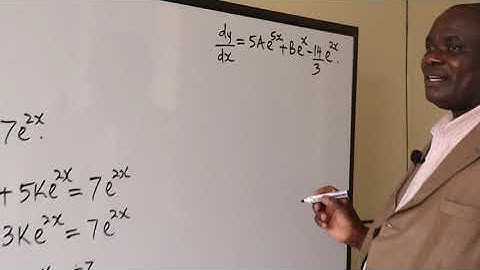 dy/dx = 5Ae^5x + Be^x - 14/3 e^2x.
7e^2x.
+ 5Ke^2x = 7e^2x
3Ke^2x = 7e^2x